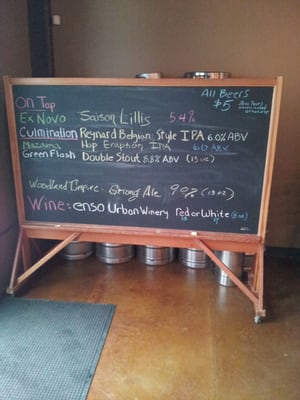 On Tap
All Beers
$5
Ex Novo Saison Lillis 5.4%
Culmination Reynard Belgian Style IPA 6.0% ABV
Mazama Hop Eruption IPA 6.0 ABV
Green Flash Double Stout 8.8% ABV (13oz)
Woodland Empire: Strong Ale 9.0% (13oz)
Wine: enso Urban Winery Red or White